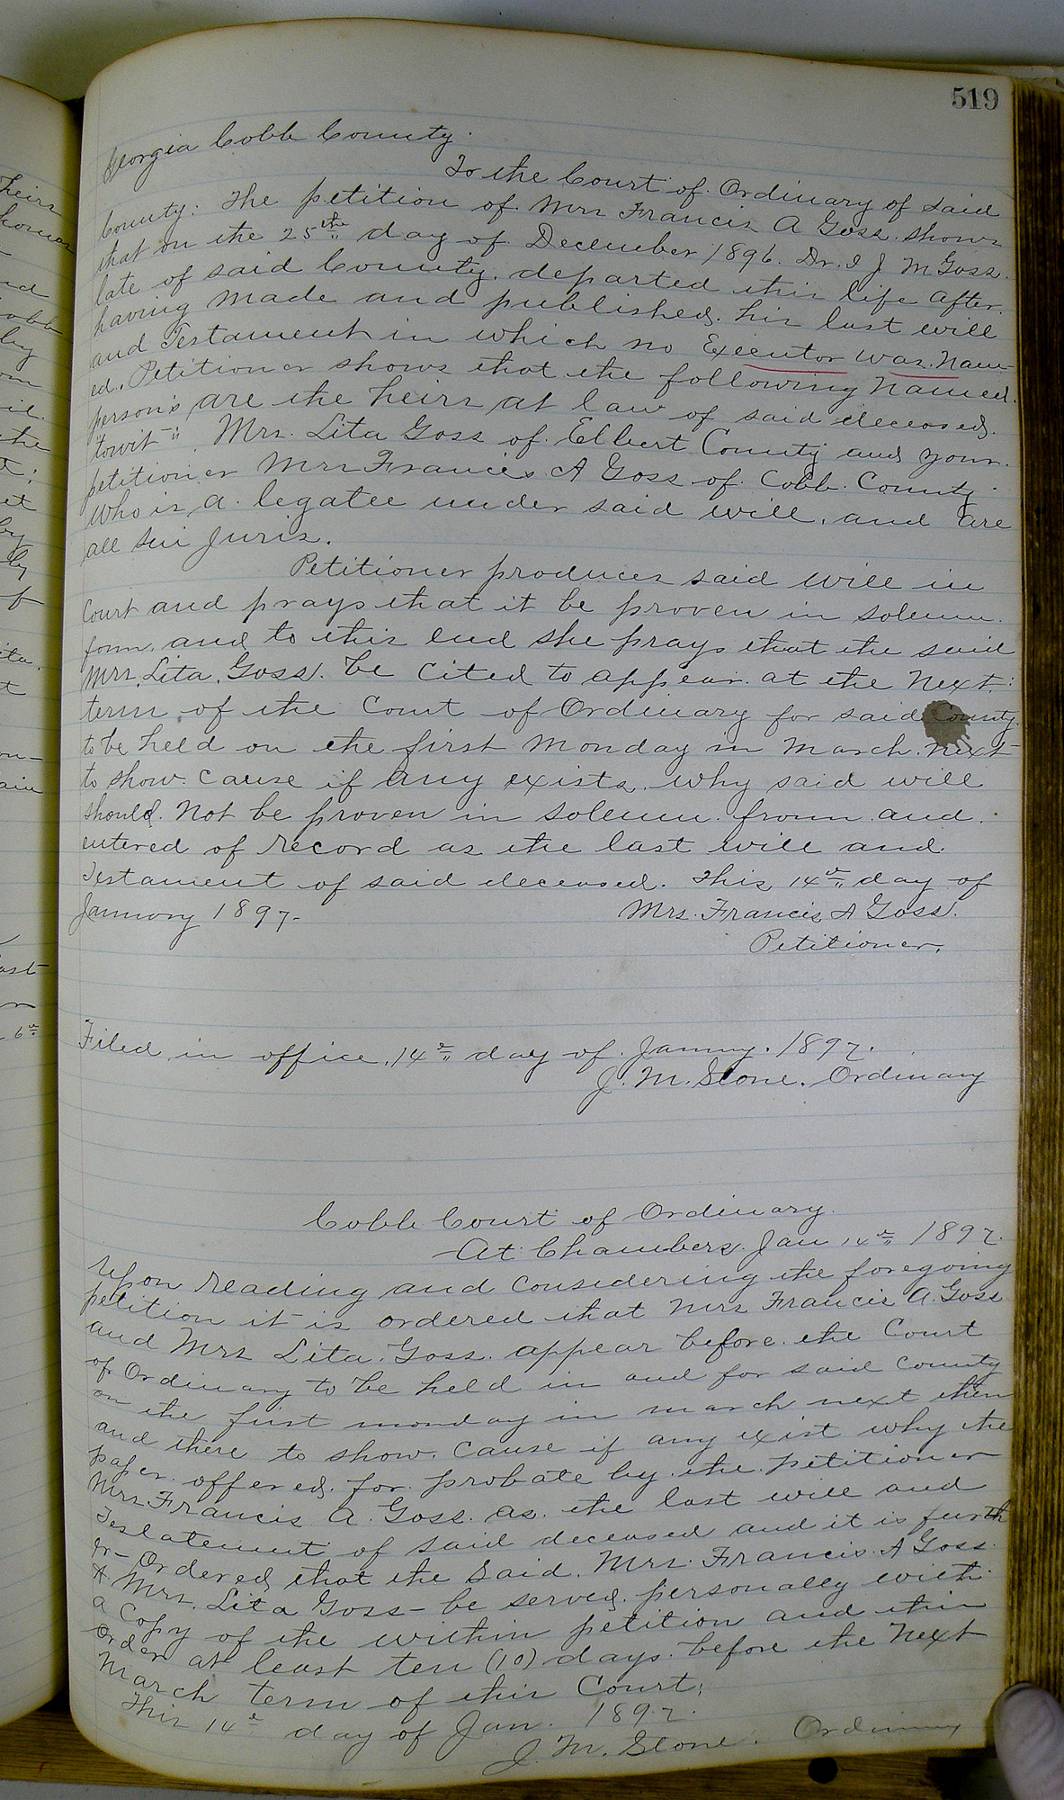 519
Georgia Cobb County.
To the Court of Ordinary of said
County: The petition of Mrs Francis A Goss shows
that on the 25th day of December 1896. Dr. I J M Goss.
late of said County. departed this life after.
having made and published. his last will
and Testament in which no Executor was. Nam-
ed. Petitioner shows that the following Named.
person's are the heirs at law of said deceased.
towit: Mrs. Lita Goss of Elbert County and your.
petitioner Mrs Francis A Goss of Cobb County
who is a legatee under said will. and are
all sui juris.
Petitioner produces said will in
Court and prays that it be proven in solemn.
form. and to this end she prays that the said
Mrs. Lita. Goss. be cited to appear. at the Next.
term of the Court of Ordinary for said County.
to be held on the first Monday in March. next
to show cause if any exists. why said will
should. Not be proven in solemn. from and.
entered of record as the last will and.
Testament of said deceased. This 14th day of
January 1897-
Mrs. Francis A Goss.
Petitioner.
Filed in office. 14th day of Januy. 1897.
J. M. Stone. Ordinary
Cobb Court of Ordinary.
At Chambers. Jan 14th 1897.
Upon reading and considering the foregoing
petition it is ordered that Mrs Francis A. Goss
and Mrs Lita. Goss. appear before. the Court
of Ordinary to be held in and for said County
on the first monday in march next then
and there to show. cause if any exist why the
paper offered. for. probate by the. petitioner
Mrs. Francis A. Goss. as. the last will and
Testatement of said deceased and it is furth
er- Ordered that the Said. Mrs. Francis. A Goss.
& Mrs. Lita Goss- be served. personally with
a Copy of the within petition and this
Order at least ten (10) days. before the Next
March term of this Court.
This 14th day of Jan. 1897.
J. M. Stone. Ordinary